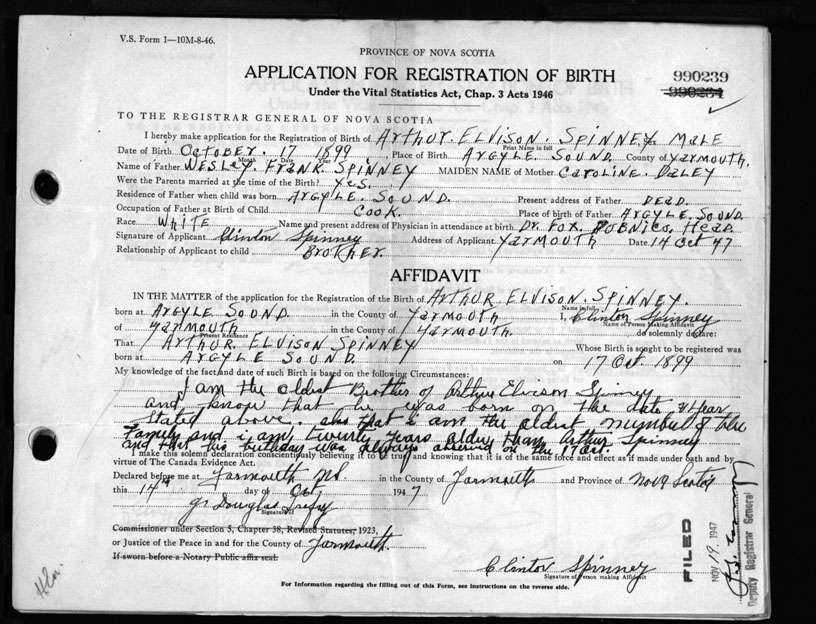 V.S. Form 1—10M-8-46.
PROVINCE OF NOVA SCOTIA
APPLICATION FOR REGISTRATION OF BIRTH
990239
Under the Vital Statistics Act, Chap. 3 Acts 1946
990234
TO THE REGISTRAR GENERAL OF NOVA SCOTIA
I hereby make application for the Registration of Birth of ARTHUR. ELVISON. SPINNEY Sex MALE
Print Name in full
Date of Birth OCTOBER. 17 1899, Place of Birth ARGYLE. SOUND. County of YARMOUTH.
Month Date Year
Name of Father WESLEY. FRANK. SPINNEY MAIDEN NAME of Mother CAROLINE. DALEY
Were the Parents married at the time of the Birth? Yes.
Residence of Father when child was born ARGYLE. SOUND. Present address of Father DEAD.
Occupation of Father at Birth of Child COOK. Place of birth of Father ARGYLE. SOUND.
Race WHITE Name and present address of Physician in attendance at birth DR. FOX. PUBNICO, HEAD.
Signature of Applicant Clinton Spinney Address of Applicant YARMOUTH Date 14 Oct 47
Relationship of Applicant to child BROTHER.
AFFIDAVIT
IN THE MATTER of the application for the Registration of the Birth of ARTHUR ELVISON. SPINNEY.
Name in full
born at ARGYLE SOUND. in the County of YARMOUTH I, Clinton Spinney
Name of Person Making Affidavit
of YARMOUTH in the County of YARMOUTH. do solemnly declare:
Present Residence
That ARTHUR. ELVISON SPINNEY Whose Birth is sought to be registered was
born at ARGYLE SOUND. on 17 Oct. 1899
My knowledge of the fact and date of such Birth is based on the following Circumstances:
I am the oldest Brother of Arthur Elvison Spinney
and know that he was born on the date & Year
stated above. that I am the oldest of the
family and I am twenty years older than Arthur Spinney
and that his birthday was always observed on the 17 Oct.
I make this solemn declaration conscientiously believing it to be true and knowing that it is of the same force and effect as if made under oath and by
virtue of The Canada Evidence Act.
Declared before me at Yarmouth N.S. in the County of Yarmouth and Province of Nova Scotia
this 14th day of Oct. 1947
Douglas
Signature of
Commissioner under Section 5, Chapter 38, Revised Statutes, 1923,
or Justice of the Peace in and for the County of Yarmouth.
If sworn before a Notary Public affix seal.
Clinton Spinney
Signature of Person making Affidavit
For Information regarding the filling out of this Form, see instructions on the reverse side.
FILED
NOV 19. 1947
Deputy Registrar General